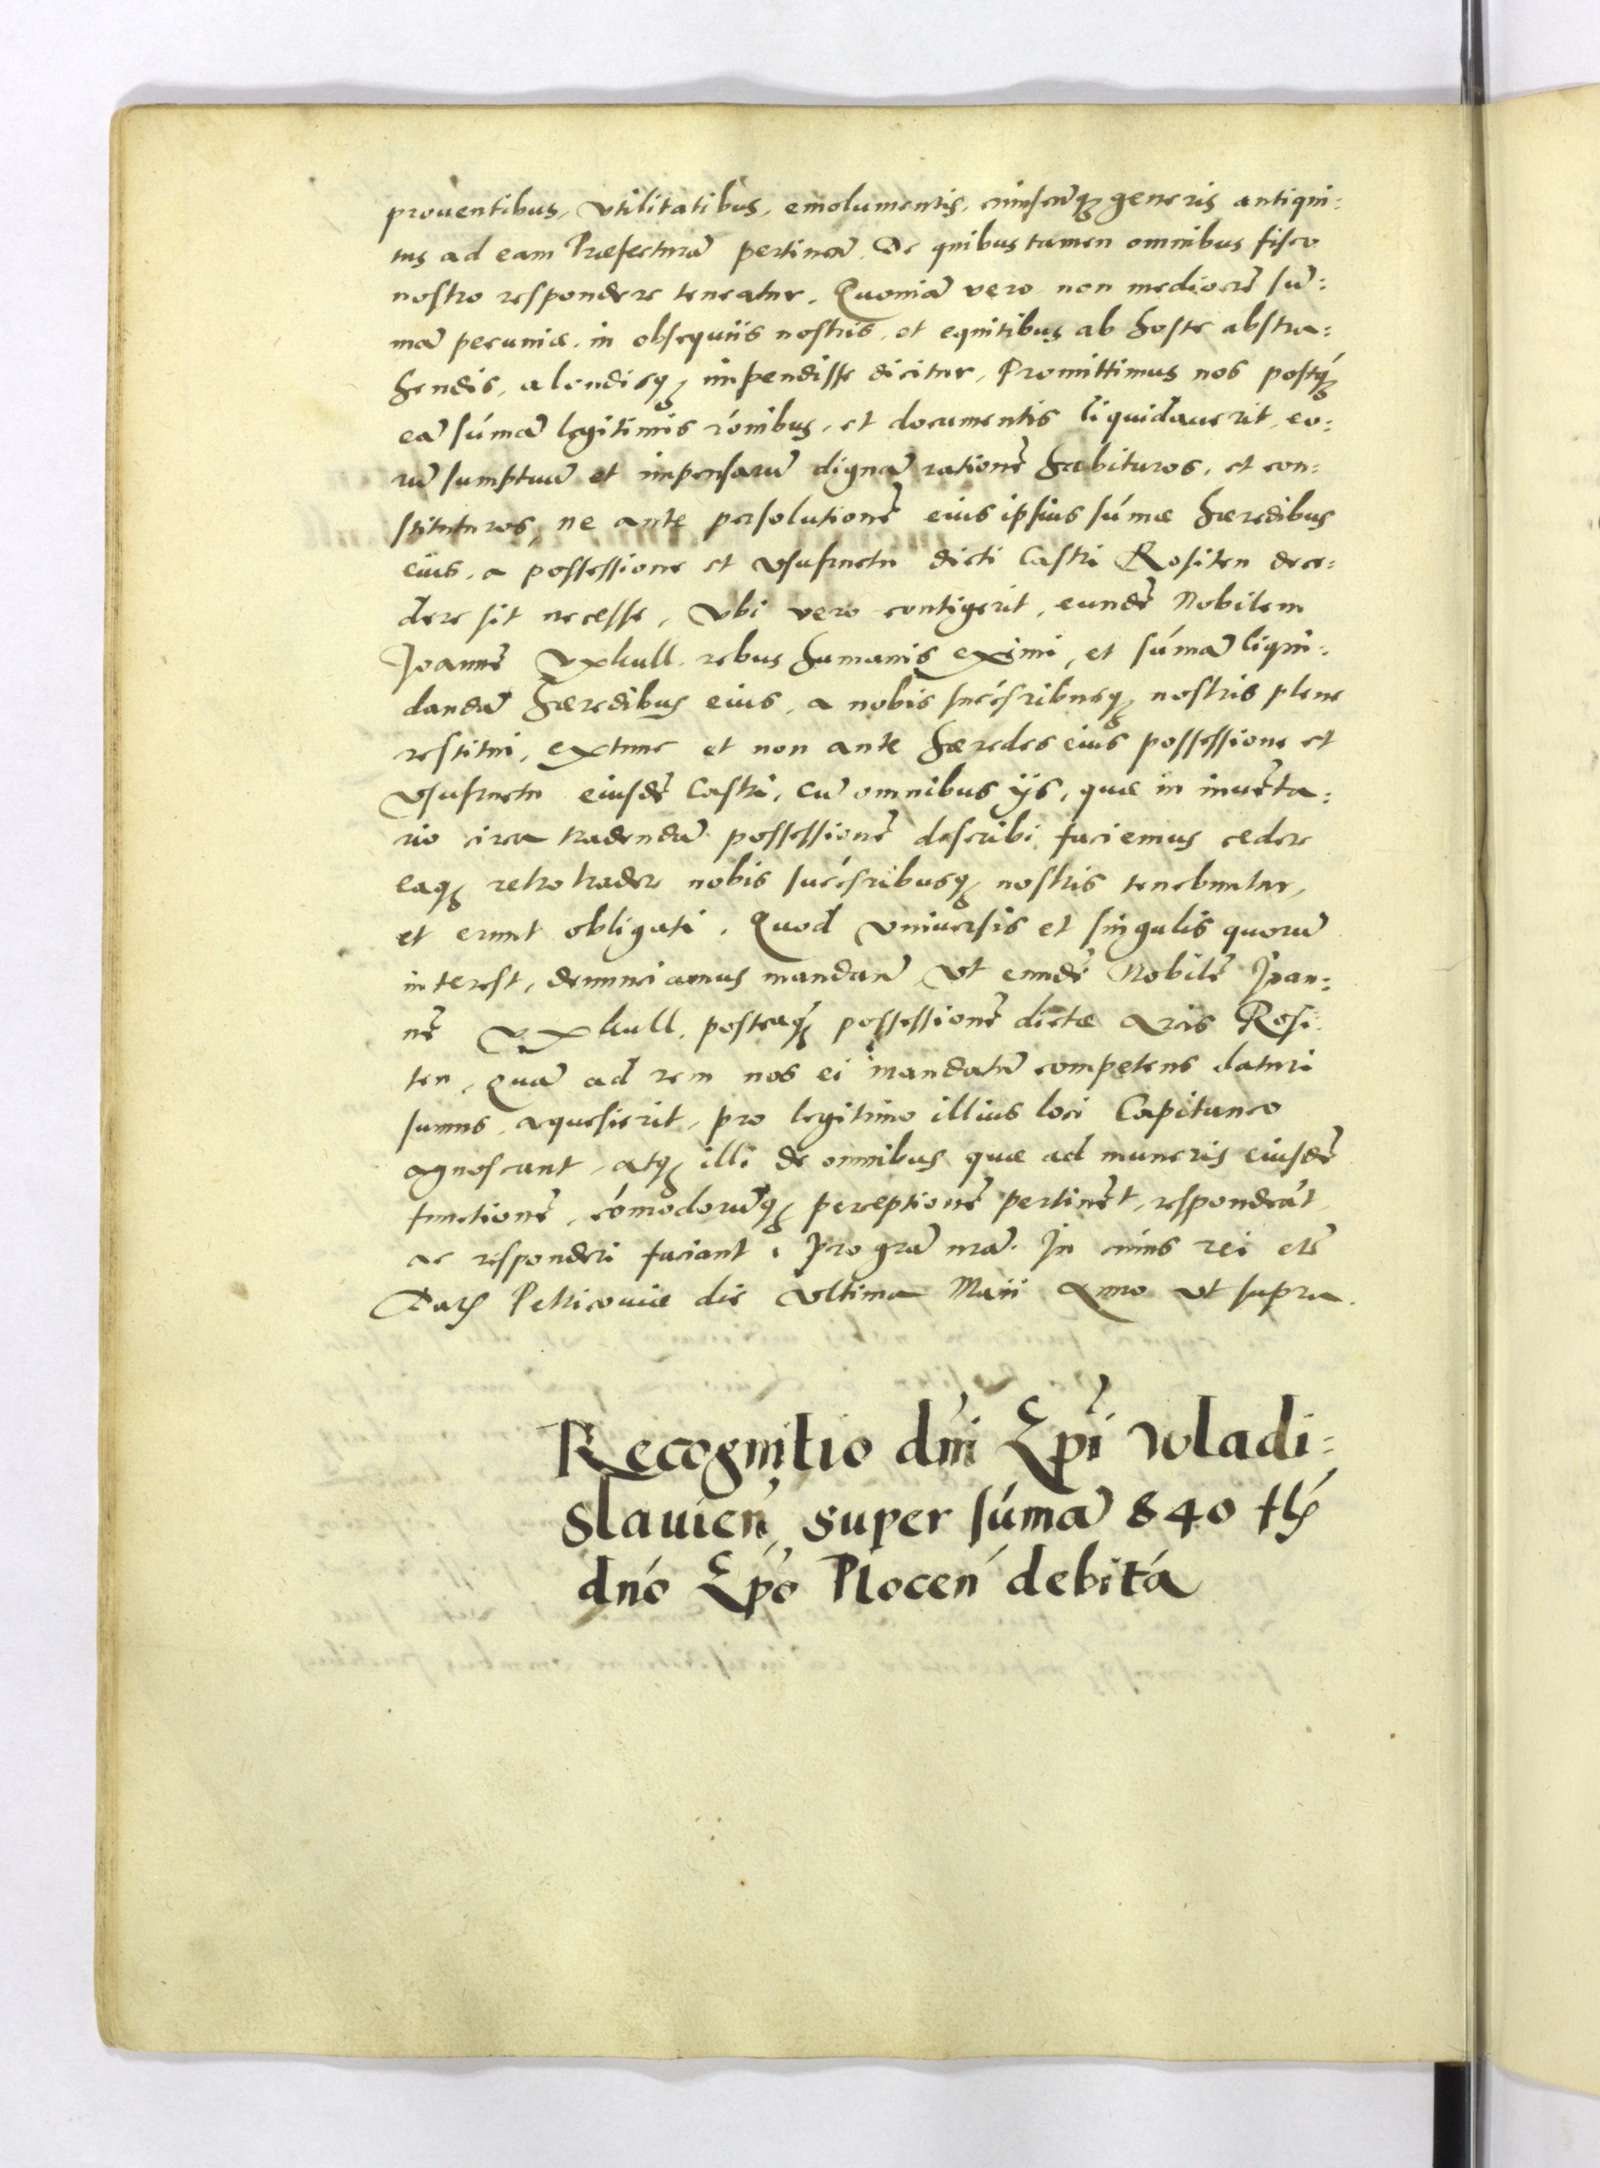 prouentibus, vtilitatibus, emolumentis, cuiuscũq₃ generis antiqui:
tus ad eam Præfecturã pertineñ. De quibus tamen omnibus fisco
nostro respondere teneatur. Quoniã vero non mediocrẽ sum̃:
mã pecuniæ, in obsequiis nostris, et equitibus ab hoste abstra:
hendis, alendisq₃ impendisse dicitur, Promittimus nos postq₃́
eã súmã legitimis rónibus, et documentis liquidauerit, eo:
rũ sumptuũ et impensarũ dignã rationẽ habituros, et con:
stituturos, ne ante persolutionẽ eius ipsius súmæ hæredibus
eius, a possessione et vsufructu dicti Castri Rositen dece:
dere sit necesse, Vbi vero contigerit, eundẽ Nobilem
Joannẽ Vxkull, rebus humanis eximi, et súmã liqui:
dandã hæredibus eius, a nobis succ̃sribusq₃ nostris plene
restitui, extunc et non ante hæredes eius possessione et
Vsufructu eiusdẽ Castri, cũ omnibus ijs, quæ in inuẽta:
rio circa tradendã possessionẽ describi faciemus cedere
eaq₃ retro tradere nobis succ̃sribusq₃ nostris tenebuntur,
et erunt obligati. Quod Vniuersis et singulis quorũ
interest, denunciamus mandañ Vt eundẽ Nobilẽ Joan:
nẽ Vxkull, posteaq₃́ possessionẽ dictæ Arcis Rosi:
ten, Quã ad rem nos ei mandatũ competens daturi
sumus, aquesierit, pro legitimo illius loci Capitaneo
agnoscant, atq₃ illi de omnibus quæ ad muneris eiusdẽ
functionẽ, cómodorũq₃ perceptionẽ pertinẽt, respondeãt
ac responderi faciant, pro grã nrã. In cuius rei etc̃
Dat₃ Petricouiæ die Vltima Maii Anno Vt supra.
Recognitio dńi Ep̃i Wladi:
slauień, super súmã 840 tl₃́
dńo Ep̃o Plocen̍ debitã